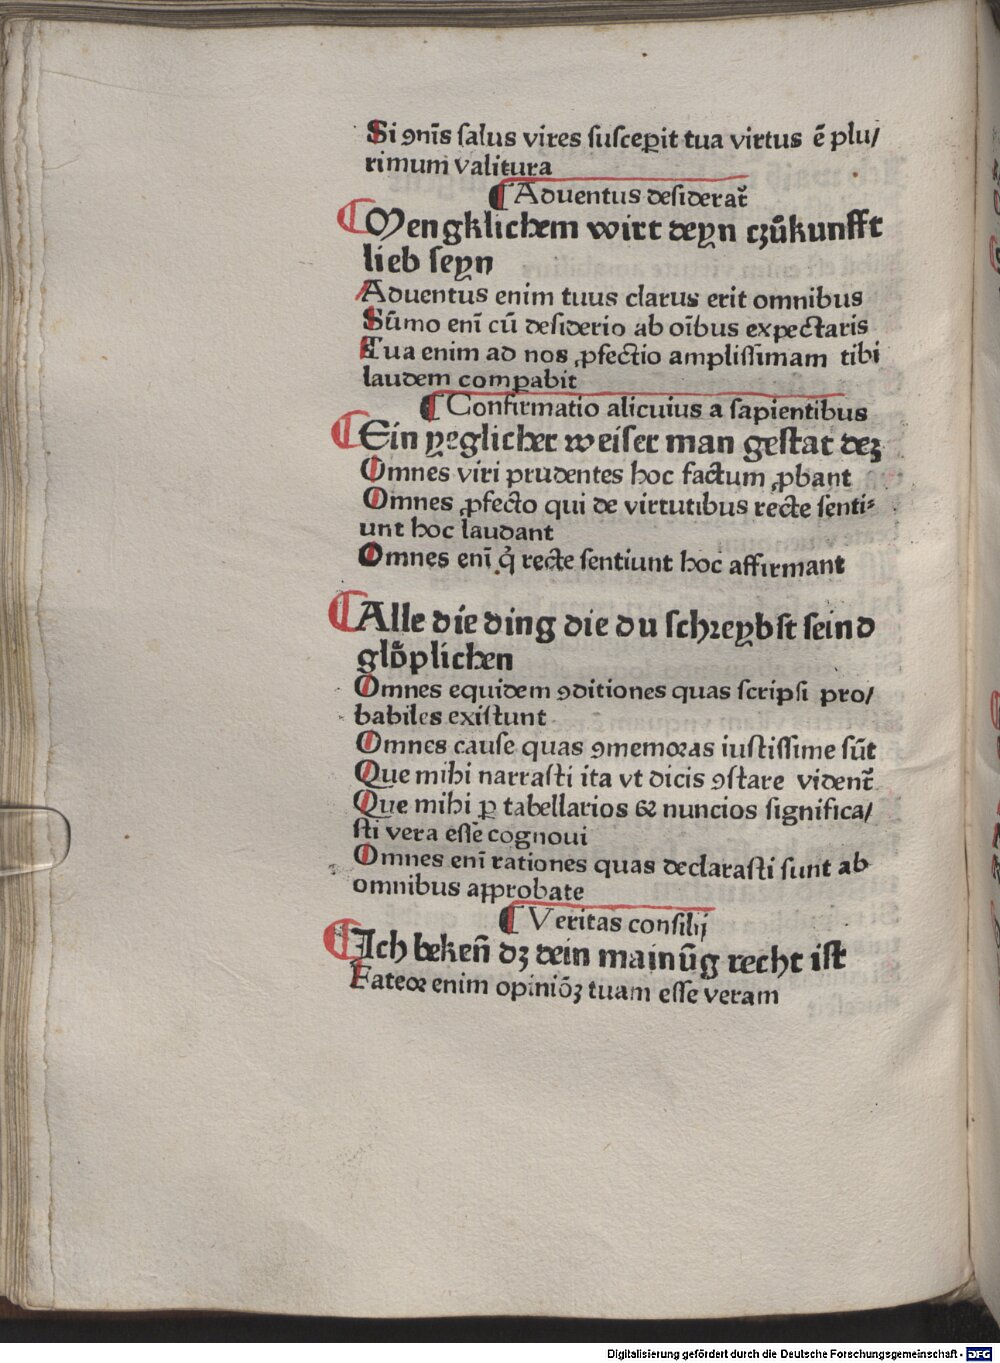 Si ꝯnīs ſalus vires ſuſceꝑit tua virtus ē plu/
rimum valitura
¶ Aduentus deſiderat̄
¶ Mengklichem wirt deyn czūkunfft
lieb ſeyn
Aduentus enim tuus clarus erit omnibus
Sūmo enī cū deſiderio ab oībus expectaris
Tua enim ad nos ꝓfectio ampliſſimam tibi
laudem comꝑabit
¶ Confirmatio alicuius a ſapientibus
¶ Ein yeglicher weiſer man geſtat deʒ
Omnes viri prudentes hoc factum ꝓbant
Omnes ꝓfecto qui de virtutibus recte ſenti⸗
unt hoc laudant
Omnes enī q̇ recte ſentiunt hoc affirmant
¶ Alle die ding die du ſchꝛeybſt ſeind
glöplichen
Omnes equidem ꝯditiones quas ſcripſi pro/
babiles exiſtunt
Omnes cauſe quas ꝯmemoꝛas iuſtiſſime ſūt
Que mihi narraſti ita vt dicis ꝯſtare vident̄
Que mihi ꝑ tabellarios & nuncios ſignifica/
ſti vera eſſe cognoui
Omnes enī rationes quas declaraſti ſunt ab
omnibus approbate
¶ Veritas conſilij
¶ Ich bekeñ dʒ dein mainūg recht iſt
Fateoꝛ enim opiniōʒ tuam eſſe veram
Digitalisierung gefördert durch die Deutsche Forschungsgemeinschaft - DFG